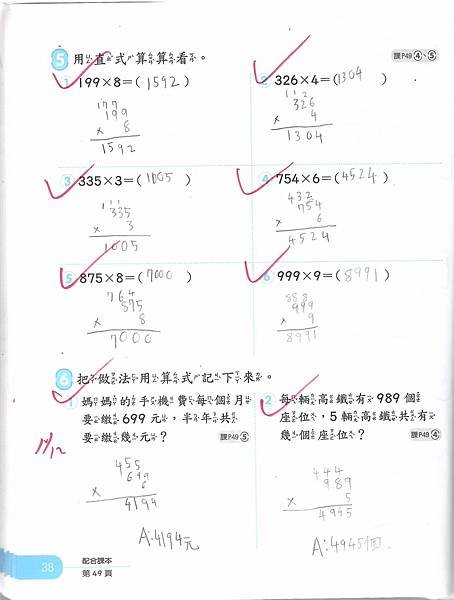 5 用直式算算看。
課P49 4、5
1 199×8=(1592)
177
199
× 8
1592
2 326×4=(1304)
112
326
× 4
1304
3 335×3=(1005)
11
335
× 3
1005
4 754×6=(4524)
432
754
× 6
4524
5 875×8=(7000)
764
875
× 8
7000
6 999×9=(8991)
888
999
× 9
8991
6 把做法用算式記下來。
1 媽媽的手機費每個月
要繳 699 元,半年共
要繳幾元?
課P49 5
455
699
6
×
4194
A:4194元
2 每輛高鐵有 989 個
座位,5 輛高鐵共有
幾個座位?
課P49 4
444
989
× 5
4945
A:4945個
38
配合課本
第 49 頁